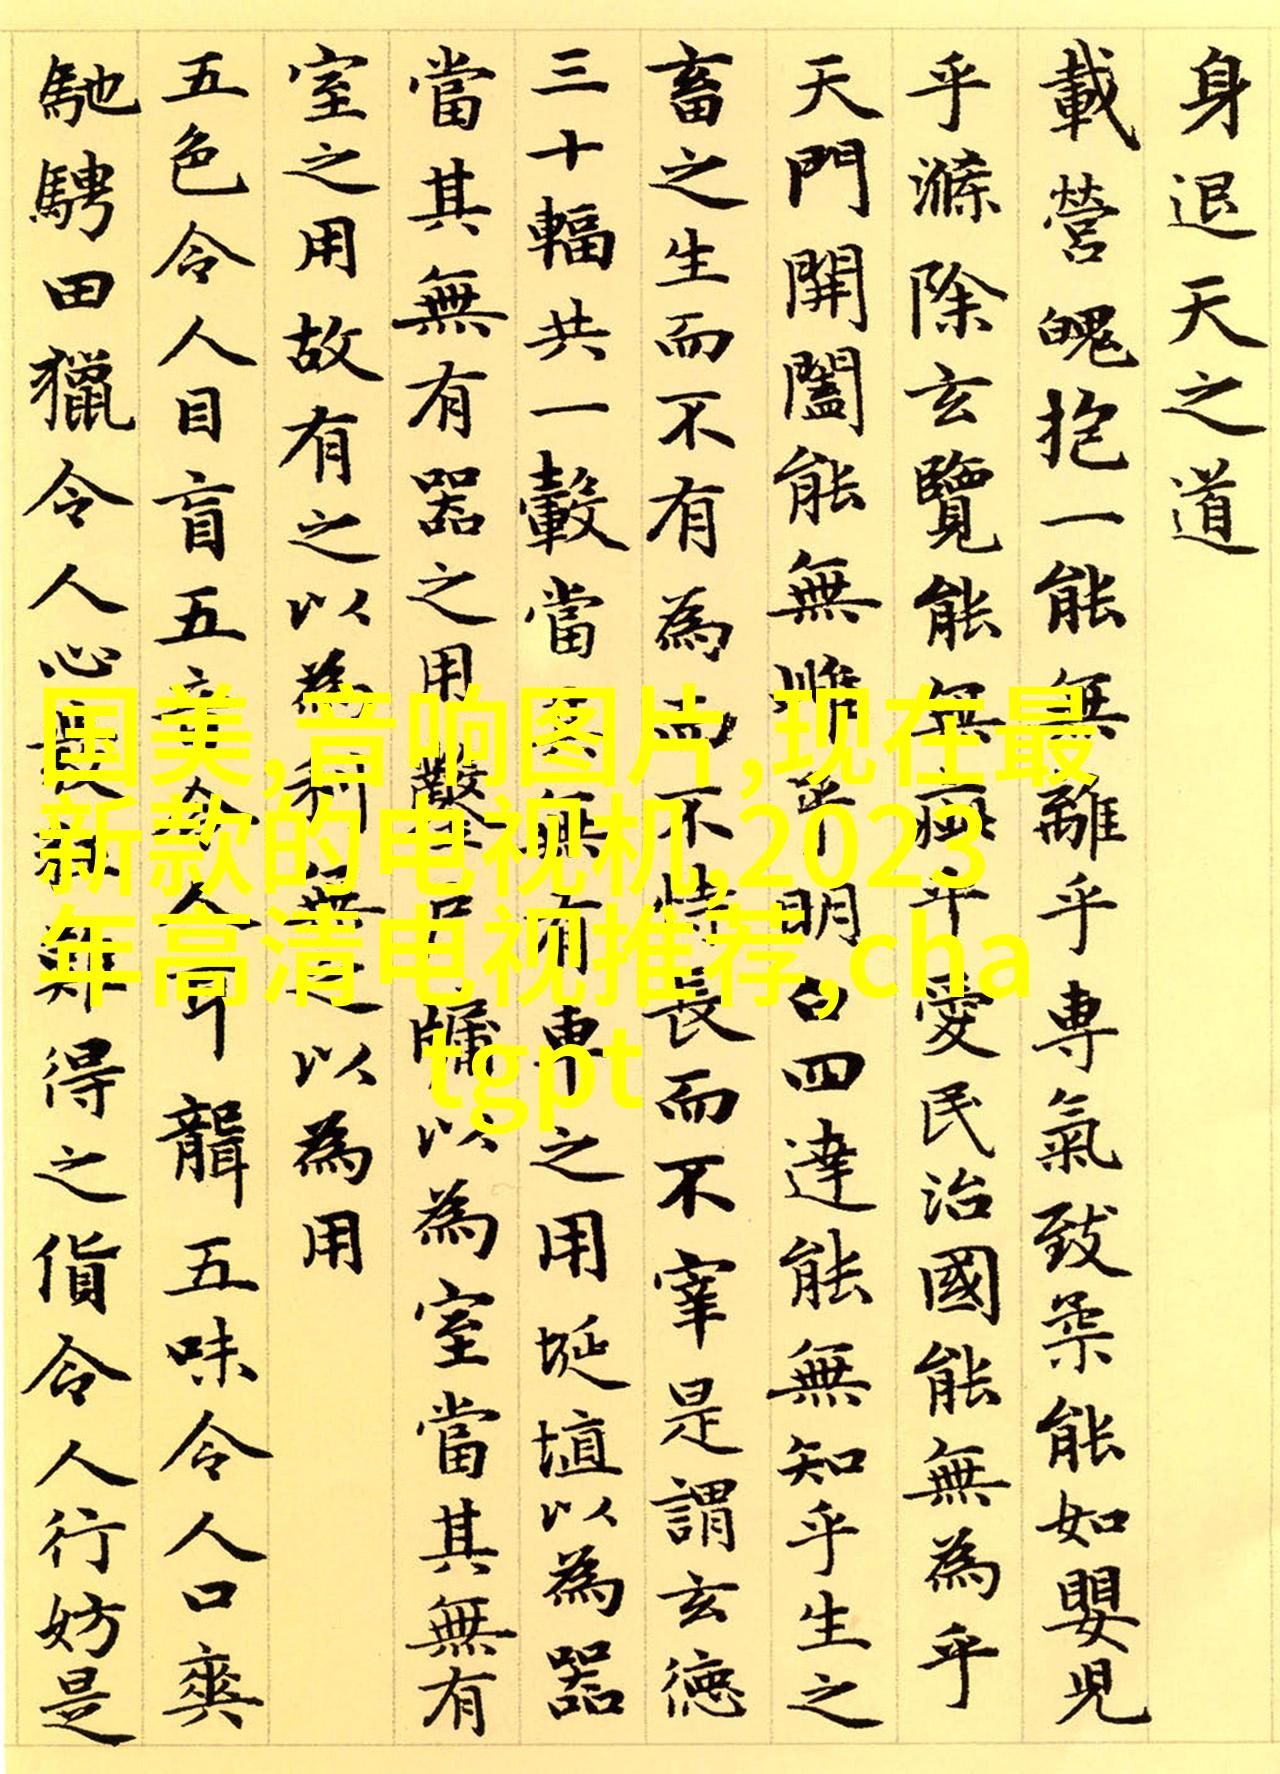 身退天之道
載營魄抱一能無離乎專氣致柔能如嬰兒
乎滌除玄覽能無疵乎愛民治國能無為乎
天門開闔能無雌乎明白四達能無知乎生之
畜之生而不有為而不恃長而不宰是謂玄德
三十輻共一轂當其無有車之用埏埴以為器
當其無有器之用鑿戶牖以為室當其無有
室之用故有之以為利無之以為用
五色令人目盲五音令人耳聾五味令人口爽
馳騁田獵令人心發狂難得之貨令人行妨是
国美,音响图片,现在最
新款的电视机,2023
年高清电视推荐,cha
tgpt